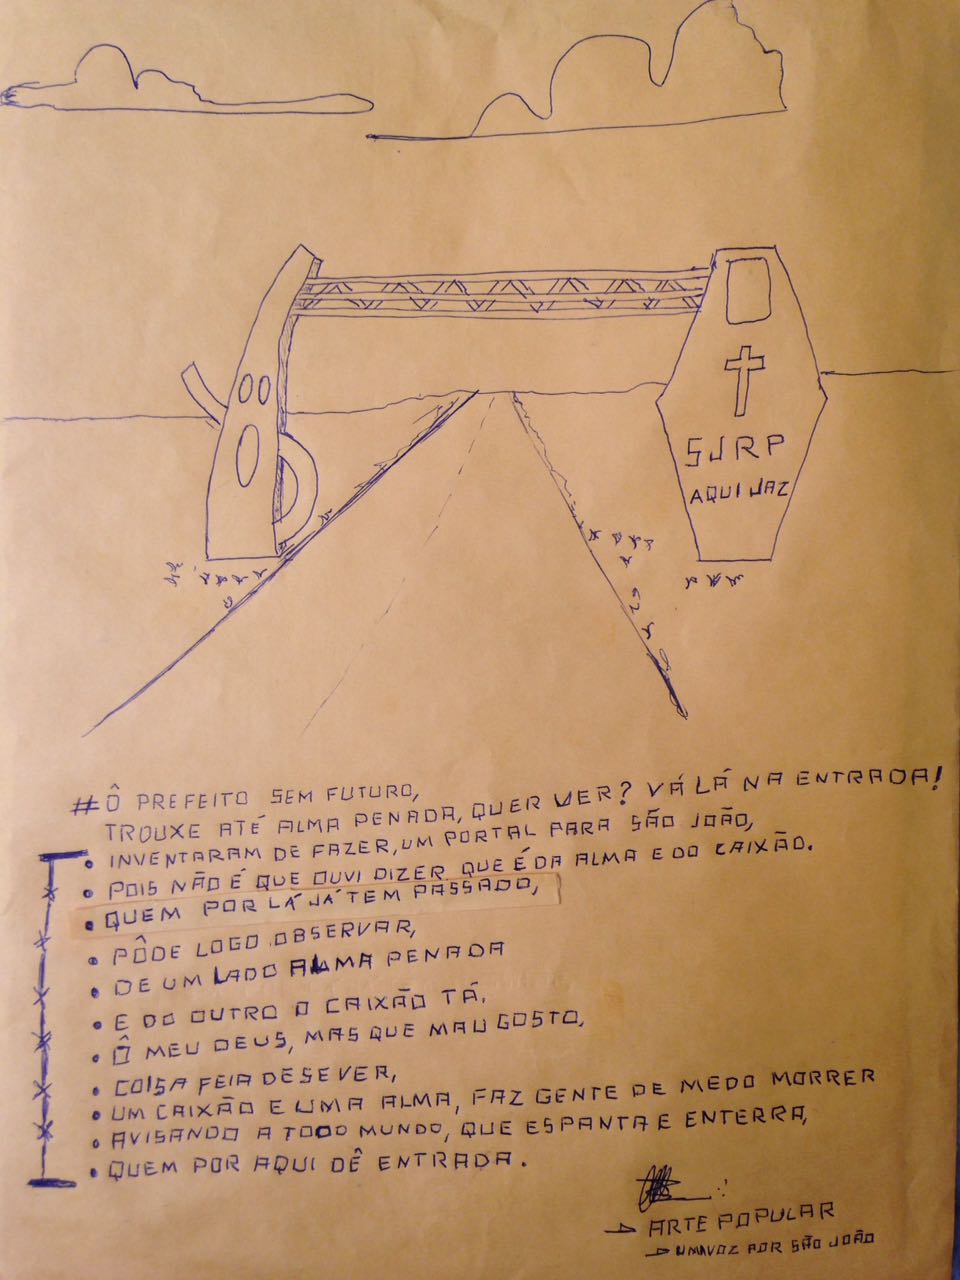 SJRP
AQUI JAZ
# Ô PREFEITO SEM FUTURO,
TROUXE ATÉ ALMA PENADA, QUER VER? VÁ LÁ NA ENTRADA!
• INVENTARAM DE FAZER, UM PORTAL PARA SÃO JOÃO,
• POIS NÃO É QUE OUVI DIZER QUE É DA ALMA E DO CAIXÃO.
• QUEM POR LÁ JÁ TEM PASSADO,
• PÔDE LOGO OBSERVAR,
• DE UM LADO ALMA PENADA
• E DO OUTRO O CAIXÃO TÁ.
• Ô MEU DEUS, MAS QUE MAU GOSTO,
• COISA FEIA DESEVER,
• UM CAIXÃO E UMA ALMA, FAZ GENTE DE MEDO MORRER
• AVISANDO A TODO MUNDO, QUE ESPANTA E ENTERRA,
• QUEM POR AQUI DÊ ENTRADA.
ARTE POPULAR
UMA VOZ POR SÃO JOÃO